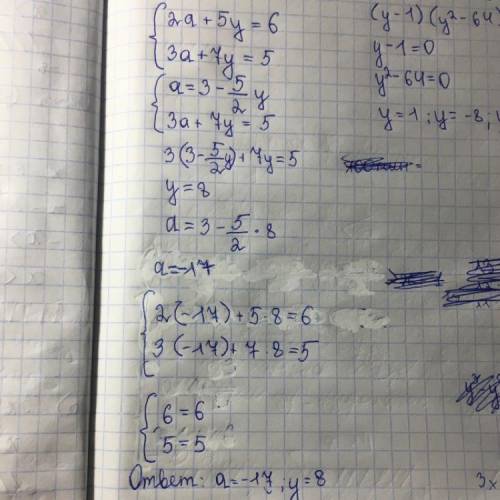 2a + 5y = 6
3a + 7y = 5
a = 3 - 5/2 y
3a + 7y = 5
3(3 - 5/2 y) + 7y = 5
y = 8
a = 3 - 5/2 · 8
a = -17
2(-17) + 5 · 8 = 6
3(-17) + 7 · 8 = 5
6 = 6
5 = 5
Ответ: a = -17; y = 8
(y-1)(y²-64
y-1=0
y²-64=0
y=1; y=-8;
3x